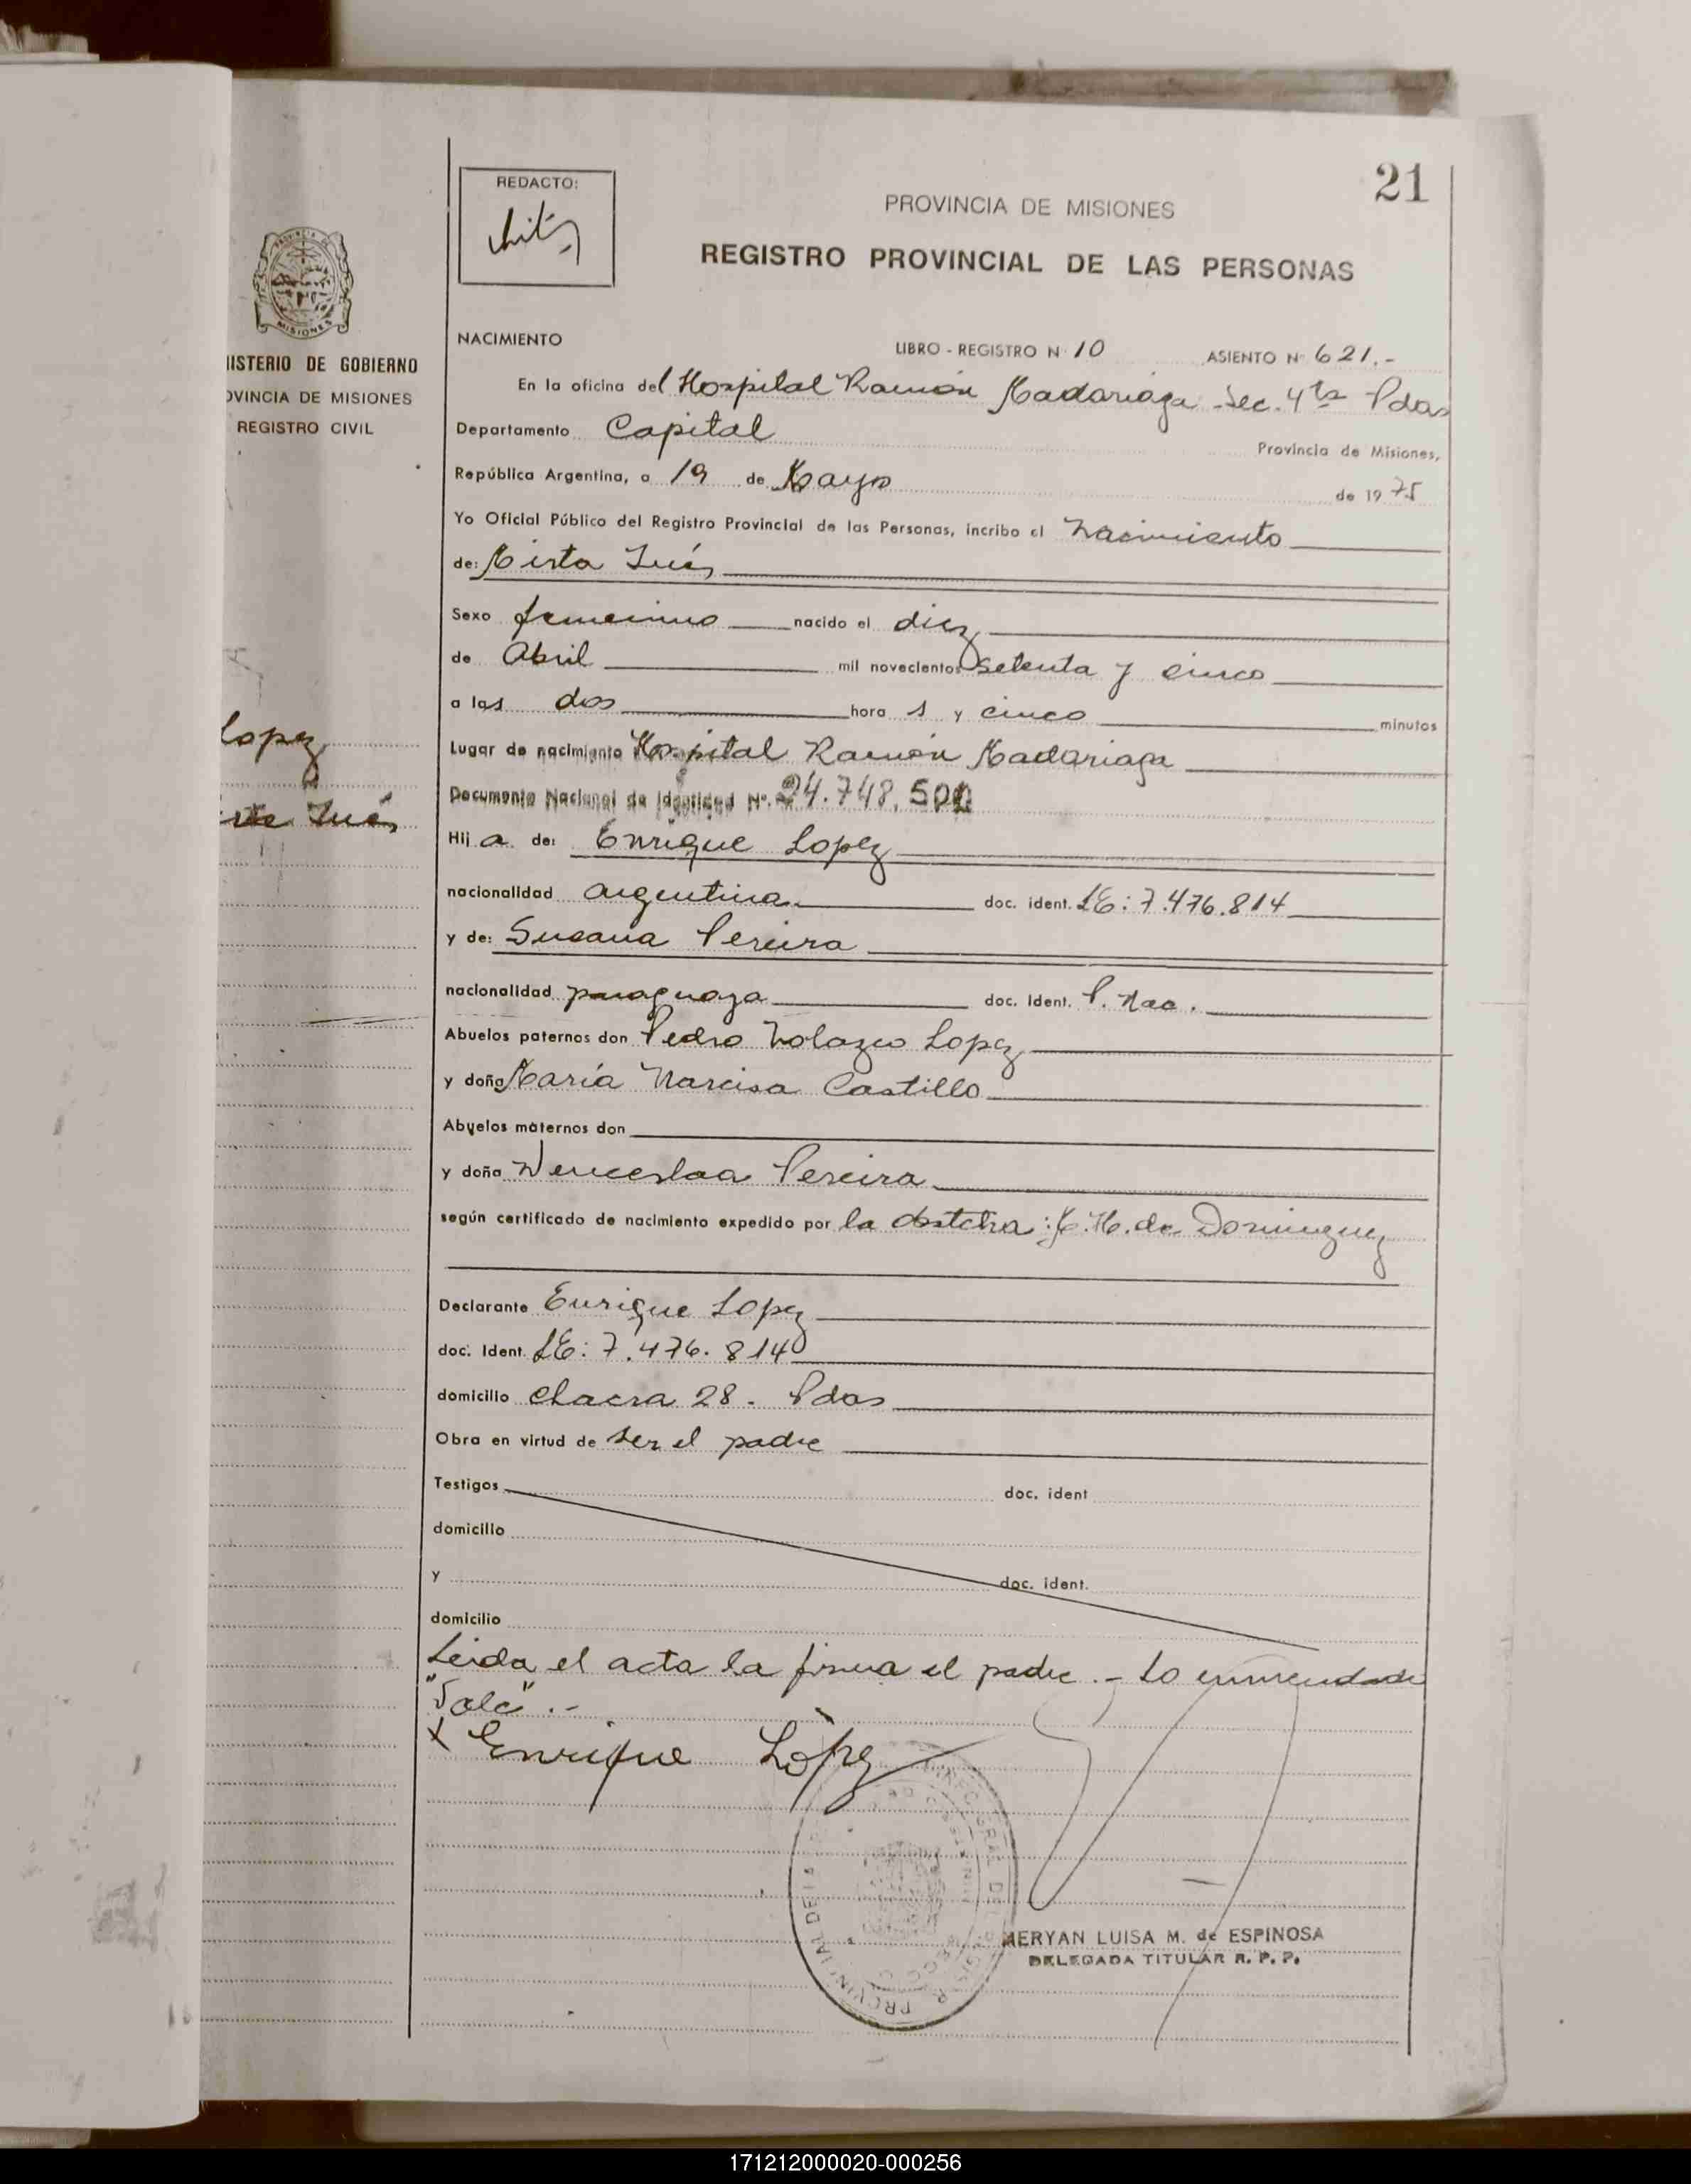 21
REDACTO:
PROVINCIA DE MISIONES
REGISTRO PROVINCIAL DE LAS PERSONAS
MISIONES
NISTERIO DE GOBIERNO
OVINCIA DE MISIONES
REGISTRO CIVIL
Lopez
Inés
NACIMIENTO LIBRO - REGISTRO N 10 ASIENTO Nº 621.-
En la oficina del Hospital Ramón Madariaga Sec. 4ta Pdas
Departamento Capital Provincia de Misiones,
República Argentina, a 19 de Mayo de 1975
Yo Oficial Público del Registro Provincial de las Personas, incribo el nacimiento
de: Mirta Inés
Sexo femenino nacido el diez
de Abril mil novecientos setenta y cinco
a las dos hora s y cinco minutos
Lugar de nacimiento Hospital Ramón Madariaga
Documento Nacional de Identidad Nº 24.748.
Hij a de: Enrique Lopez
nacionalidad argentina doc. ident. LE: 7.476.814
y de: Susana Pereira
nacionalidad paraguaya doc. Ident.
Abuelos paternos don Pedro Lopez
y doña María Narcisa Castillo
Abuelos maternos don
y doña Wenceslaa Pereira
según certificado de nacimiento expedido por la obstetra: de Dominguez
Declarante Enrique Lopez
doc. Ident. LE: 7.476.814
domicilio chacra 28. Pdas
Obra en virtud de ser el padre
Testigos doc. ident
domicilio
y doc. ident.
domicilio
Leida el acta la firma el padre.- Lo enmendado
"Vale".-
x Enrique López
MERYAN LUISA M. de ESPINOSA
DELEGADA TITULAR R. P. P.
171212000020-000256